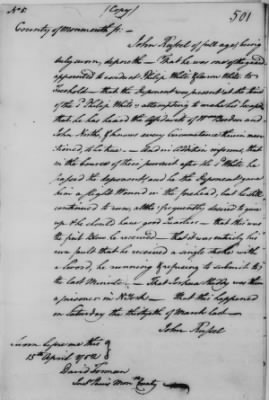 No 5. (Copy) 501
County of Monmouth ss:
John Russel of full age, being
duly sworn, deposeth — That he was one of the guard
appointed to conduct Philip White & Aaron White to
Freehold — that the deponent was present at the time
of the sd. Philip White's attempting to make his escape
that he has heard the Affidavits of Wm Borden and
John North, & knows every circumstance therein men-
tioned, to be true. — And in addition informs, that
in the course of their pursuit after the sd. White he
the deponent, and he the deponent gave
him a slight Wound in the forehead, but he still
continued to run, altho' frequently desired to give
up, & he should have good Quarter — that this was
the first Blow he received — that it was entirely his
own fault that he received a single stroke with
a Sword, he running & refusing to submit to
the last Minute. — That Joshua Huddy was then
a prisoner in N York — that this happened
on Saturday the thirtieth of March last —
John Russel
Sworn before me this
15th April 1782
David Forman
Month County